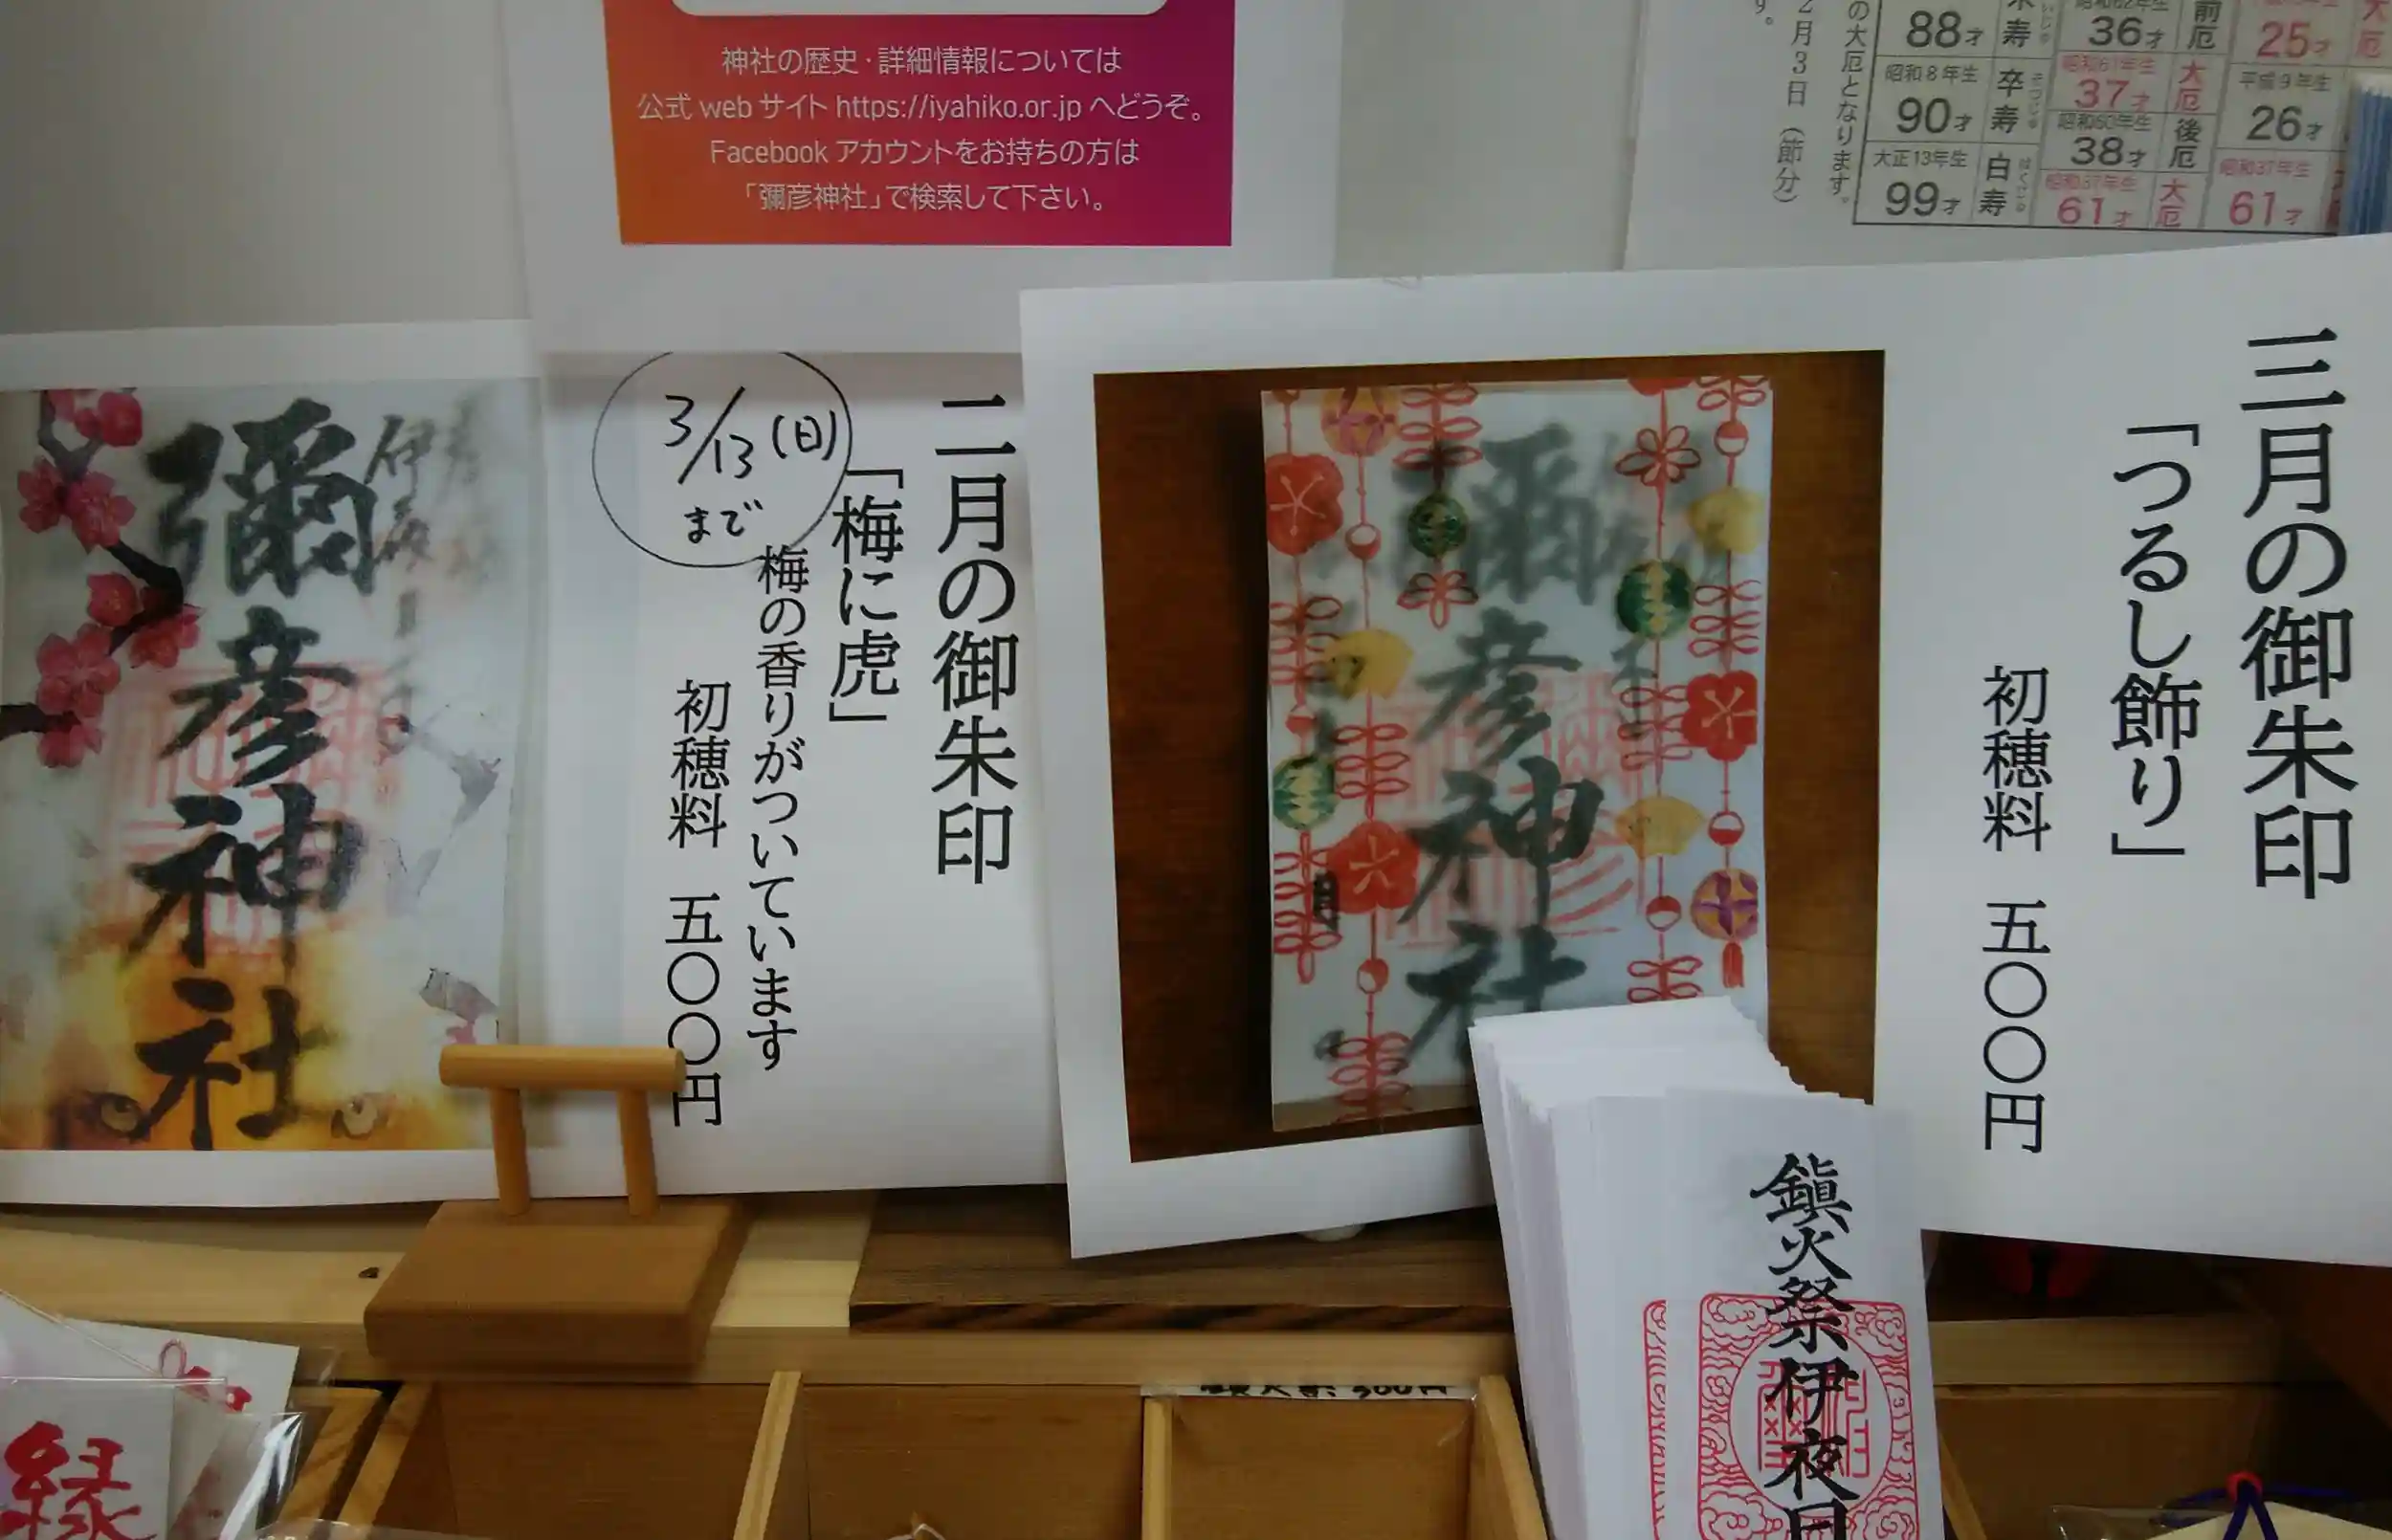 神社の歴史・詳細情報については
公式 web サイト https://iyahiko.or.jp へどうぞ。
Facebook アカウントをお持ちの方は
「彌彦神社」で検索して下さい。
の大厄となります。
2月3日（節分）
す。
88才
寿
昭和8年生
90才
卒寿
そつじゅ
大正13年生
99才
白寿
はくじゅ
昭和62年生
36才
前厄
昭和61年生
37才
大厄
昭和60年生
38才
後厄
昭和37年生
61才
大厄
25才
大厄
平成9年生
26才
昭和37年生
61才
三月の御朱印
「つるし飾り」
初穂料 五〇〇円
彌彦神社
二月の御朱印
「梅に虎」
梅の香りがついています
初穂料 五〇〇円
3/13(日)
まで
彌彦神社
鎮火祭伊夜日
縁